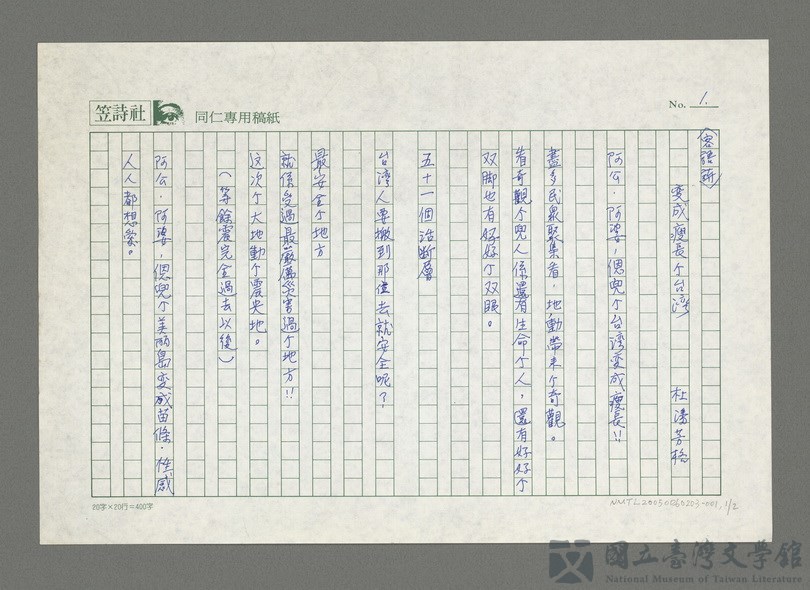 笠詩社
同仁專用稿紙
No. 1.
(客語詩)
变成瘦長个台湾
杜潘芳格
阿公．阿婆，𠊎兜个台湾变成瘦長!!
盡多民眾聚集看．地動帶来个奇觀。
看奇觀个兜人係還有生命个人，還有好好个
双脚也有好好个双眼。
五十一個活断層
台湾人要搬到那位去就安全呢？
最安全个地方
就係受過最嚴厲災害過个地方!!
這次个大地動个震央地。
（等餘震完全過去以後）
阿公．阿婆，𠊎兜个美丽島变成苗條．性感
人人都想愛。
20字×20行=400字
NMTL20050060203-001, 1/2
國立臺灣文學館
National Museum of Taiwan Literature